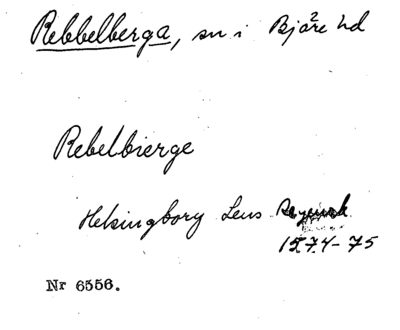 Rebbelberga, sn i Bjäre hd
Rebelbierge
Helsingborg Lens
1574-75
Nr 6556.